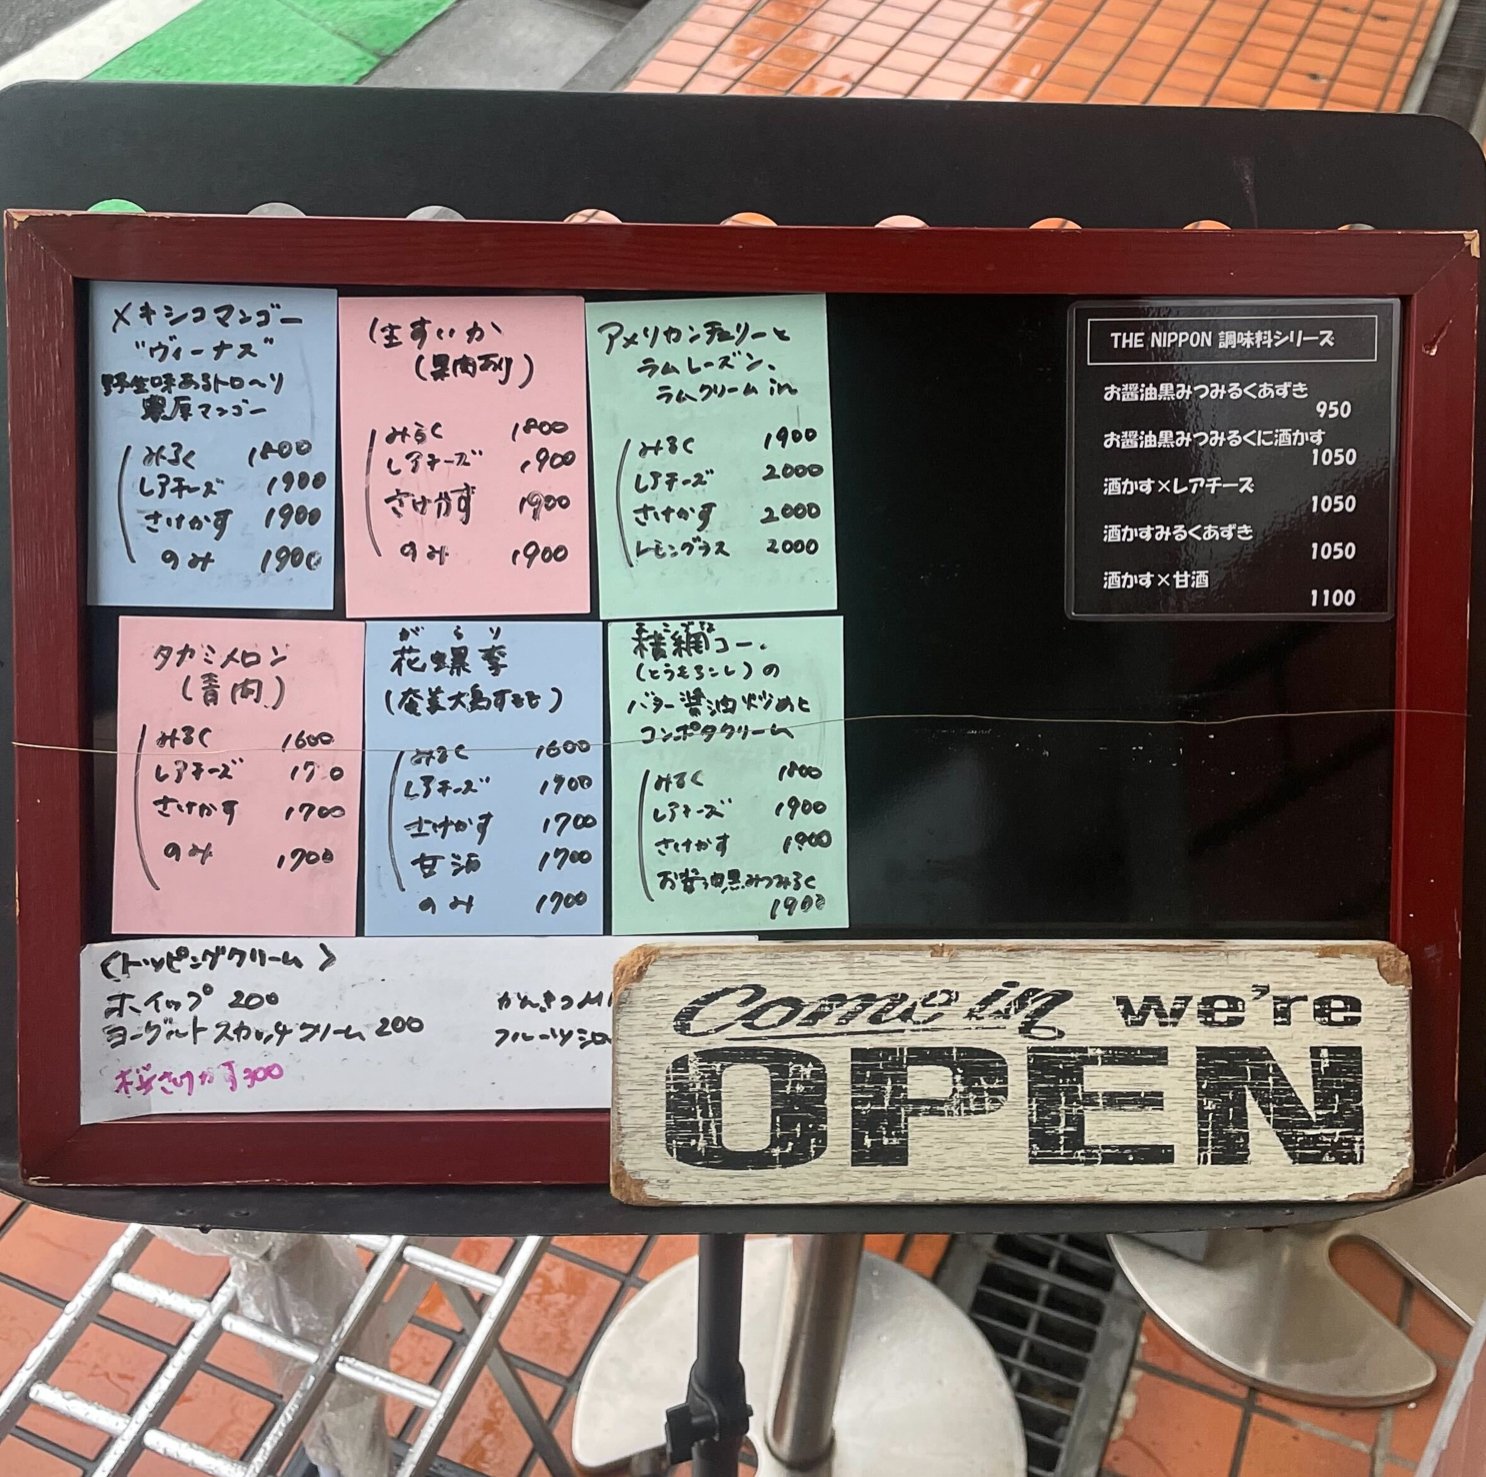 メキシコマンゴー
"ヴィーナス"
野生味あるトロ〜リ
濃厚マンゴー
みるく 1800
レアチーズ 1900
さけかす 1900
のみ 1900
生すいか
(果肉あり)
みるく 1800
レアチーズ 1900
さけかす 1900
のみ 1900
アメリカンチェリーと
ラムレーズン、
ラムクリーム in
みるく 1900
レアチーズ 2000
さけかす 2000
レモングラス 2000
THE NIPPON 調味料シリーズ
お醤油黒みつみるくあずき
950
お醤油黒みつみるくに酒かす
1050
酒かす×レアチーズ
1050
酒かすみるくあずき
1050
酒かす×甘酒
1100
タカミメロン
(青肉)
みるく 1600
レアチーズ
さけかす 1700
のみ 1700
がらり
花螺李
(奄美大島すもも)
みるく 1600
レアチーズ 1700
さけかす 1700
甘酒 1700
のみ 1700
コー.
(とうもろこし)の
バター醤油炒めと
コンポタクリーム
みるく 1800
レアチーズ 1900
さけかす 1900
お醤油黒みつみるく
1900
〈トッピングクリーム〉
ホイップ 200
ヨーグルトスカッチクリーム 200
桜さけかす300
かんきつ
フルーツシロ
Come in we're
OPEN